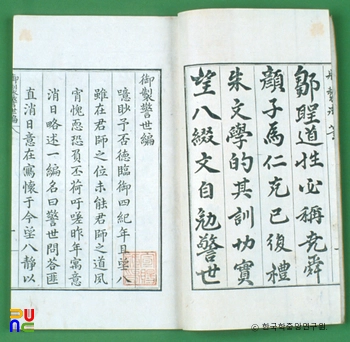 鄒聖道性必稱堯舜
顔子爲仁克己復禮
朱文學的其訓切實
望八綴文自勉警世
御製警世編
噫眇予否德臨御四紀年且望八
雖在君師之位未能君師之道夙
宵愧恧恐負丕荷吁嗟昨年寓意
消日略述一編名曰警世問答匪
直消日意在寓懷于今望八靜以
御製警世編
© 한국학중앙연구원